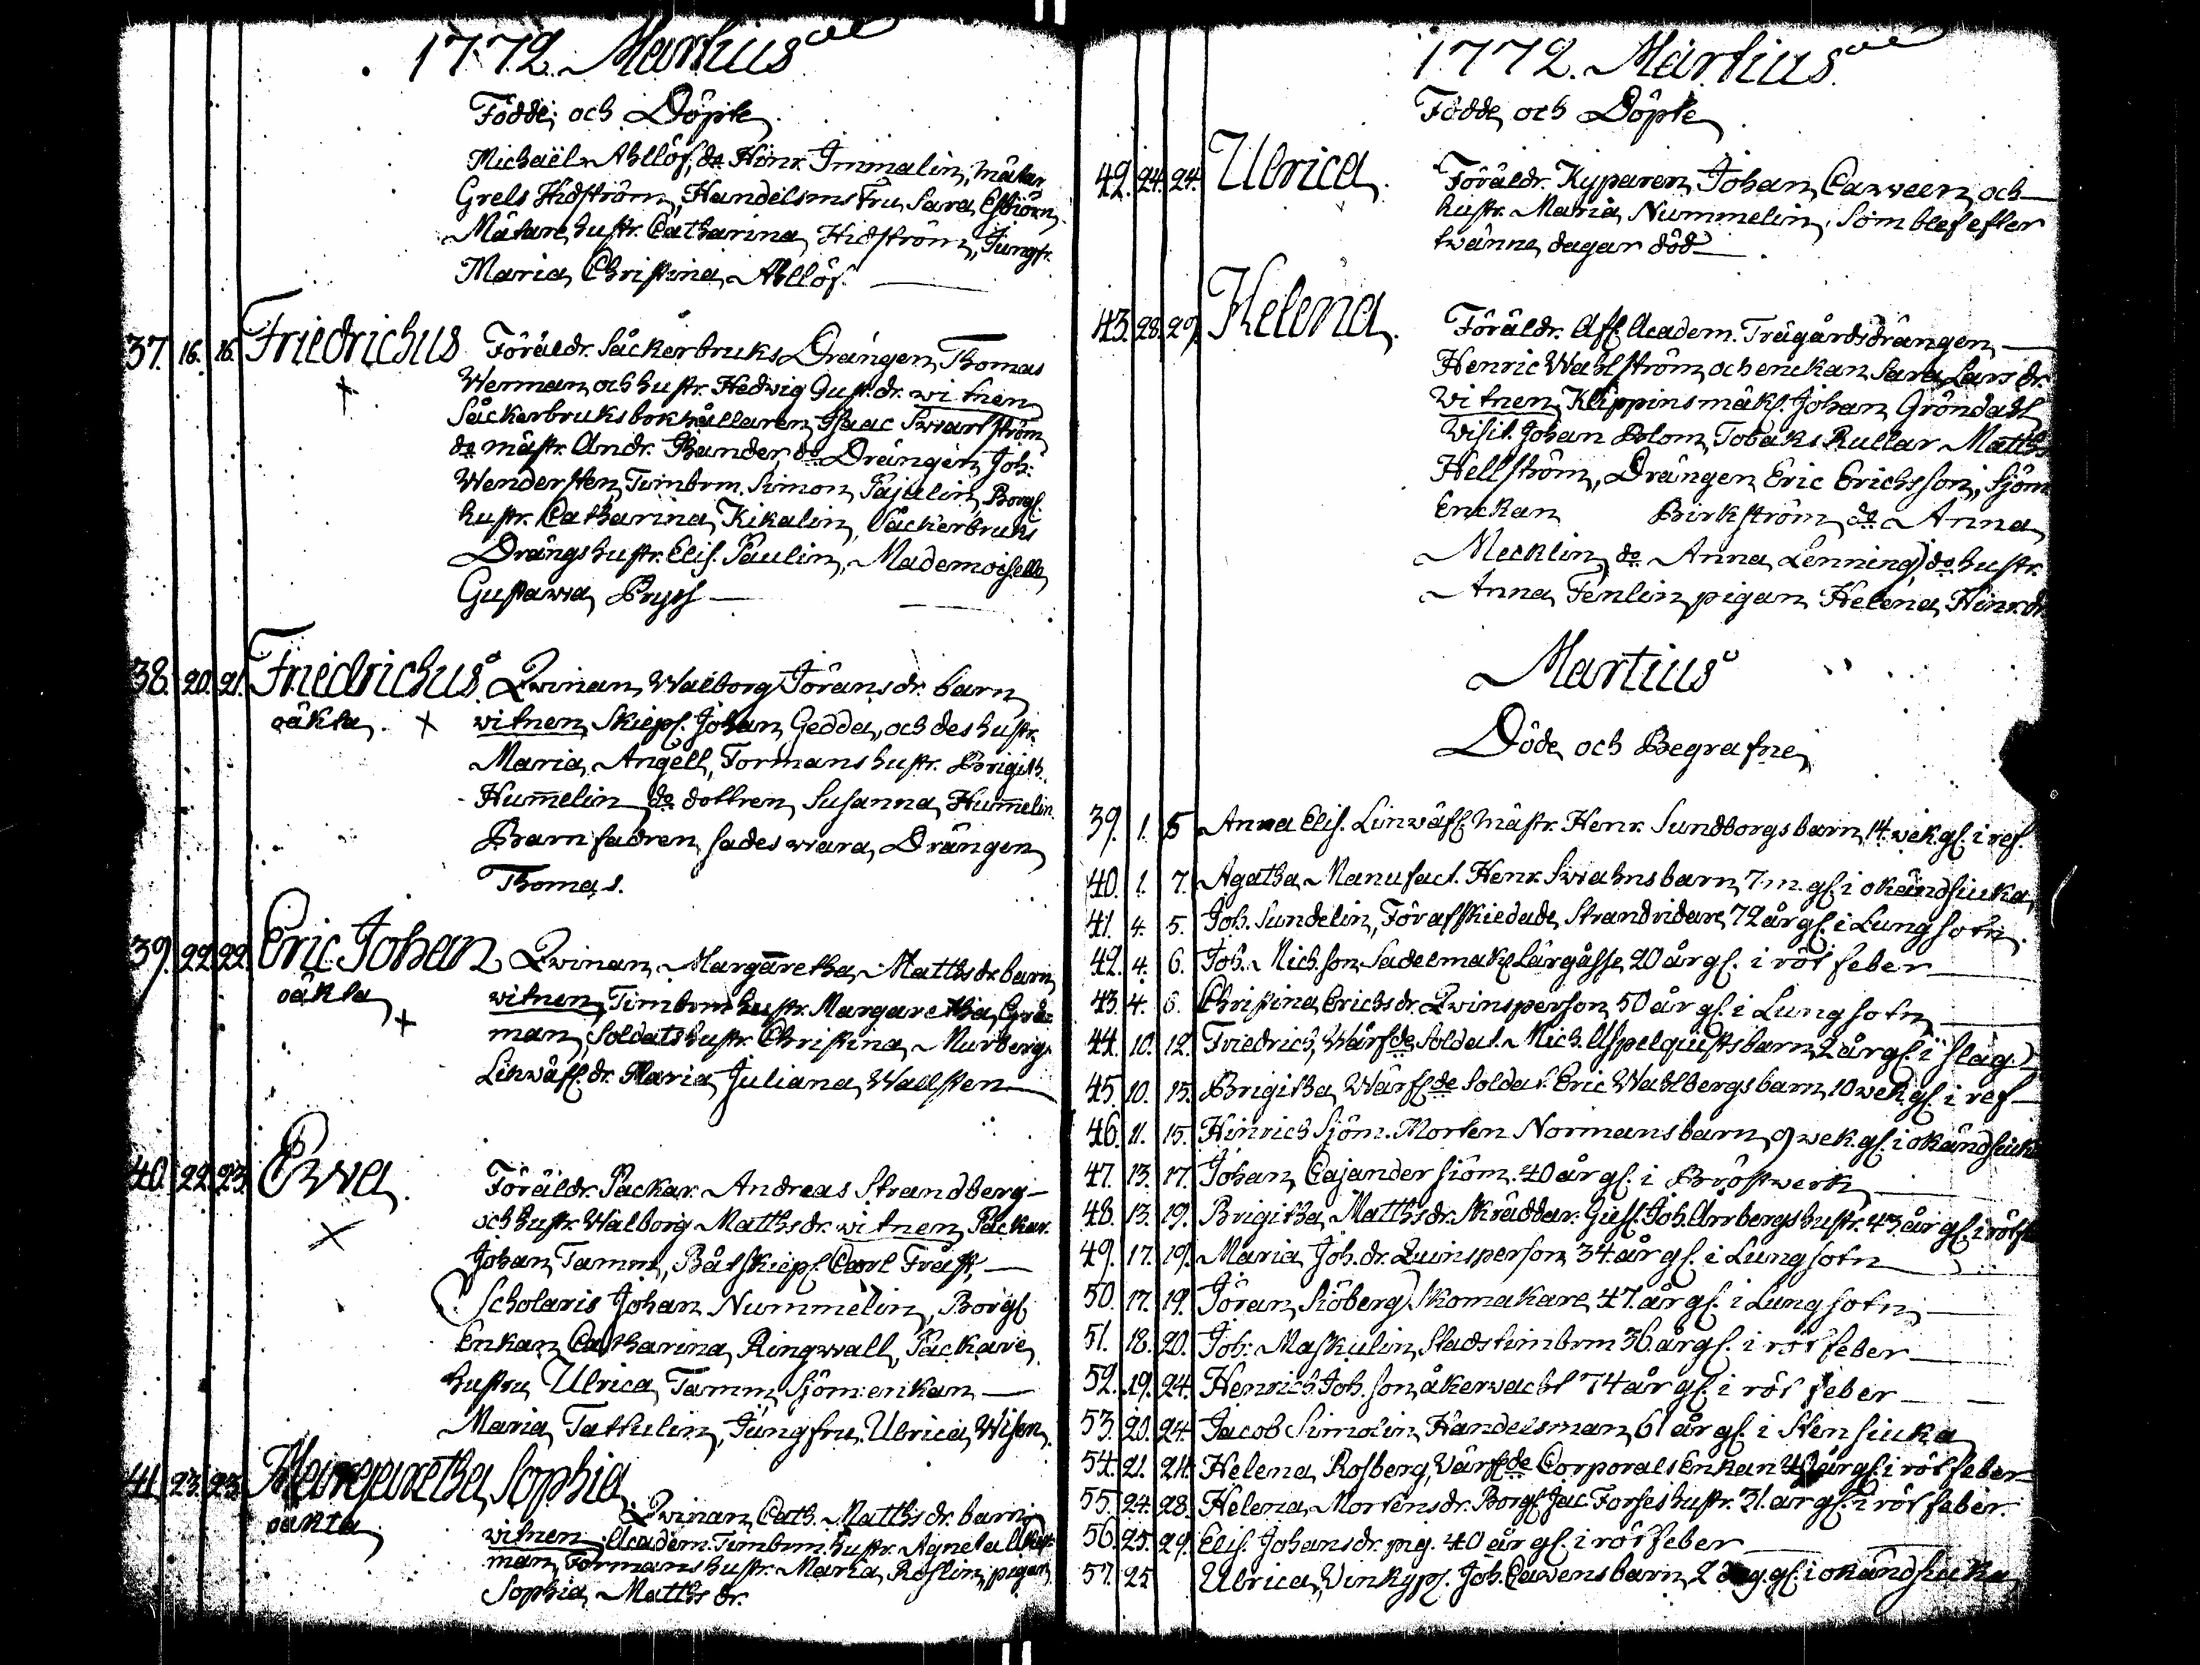 1772. Martius
Födde, och Döpte
Michaël Ahllöf, do Hinr. Immalin, mätar
Grels Hidström, Handelsms Fru Sara Esbiörn
Mätare hustr. Catharina Hidström, Jungfr.
Maria Christina Ahllöf.
37. 16. 16. Friedrichus Föräldr. Såckerbruks Drängen Thomas
Werman och hustr. Hedwig Gust.dr. witnen
Såckerbruks bokhållaren Isaac Swartström
do mästr. Andr. Bander, do Drängen Joh:
Wendersten, Timbrm. Simon Pajulin, Borgs.
hustr. Catharina Kikalin, Såckerbruks
Drängs hustr. Elis. Paulin, Mademoiselle
Gustawa Bryss
38. 20. 21. Friedrichus Qwinan Walborg Jöransdr. barn
oäkta. witnen Skieps. Johan Gedda, och des hustr.
Maria Angell, Formans hustr. Brigith.
Hum̄elin do dottren Susanna Hum̄elin.
Barnfadren sades wara Drängen
Thomas.
39. 22. 22. Eric Johan Qwinan Margaretha Matthsdr. barn
oäkta witnen Timbrm hustr. Margaretha
man, Soldats hustr. Christina Murberg,
Linwäf. dr. Maria Juliana Wallsten
40. 22. 23. Ewa Föräldr. Packar. Andreas Strandberg
och hustr. Walborg Matthsdr. witnen Packar.
Johan Tamm, Båtskieps. Carl Träsk,
Scholaris Johan Nummelin, Borgs.
Enkan Catharina Ringwall, Packare
hustru Ulrica Tamm Sjöm: enkan
Maria Tattulin, Jungfru Ulrica Wisen.
41. 23. 23. Margaretha Sophia
oäkta Qwinan Cath. Matthsdr. barn
witnen Academ. Timbrm. hustr. Agneta
man, Formans hustr. Maria Roslin, pigan
Sophia Matthsdr.
1772. Martius
Födde, och Döpte
42. 24. 24. Ulrica. Föräldr. Kyparen Johan Caween och
hustr. Maria Nummelin. Som blef efter
twänne dagar död.
43. 28. 29. Helena. Föräldr. Afl. Academ. Trägårdsdrängen
Henric Wahlström och enckan Sara Larsdr.
witnen Klippinsmaks. Johan Gröndahl
Visit. Johan Blom, Tobaks Rullar Matths
Hellström, Drängen Eric Erichsson, Sjöm
Enckan Birkström, do Anna
Mecklin, do Anna Lenning, do hustr.
Anna Fenlin pigan Helena Hinr.dr
Martius
Döde och Begrafne
39. 1. 5 Anna Elis. Linwäf. Mästr. Henr. Sundborgs barn, 14. wek. gl. i ref.
40. 1. 7. Agatha Manufact. Henr. Swahns barn 7. m. gl. i okänd siuka
41. 4. 5. Joh. Sundelin, Förafskiedade Strandridare 72 år gl. i Lungsotn.
42. 4. 6. Joh. Mich.son Sadelmak. Lärgåsse 20 år gl. i röt feber
43. 4. 8. Christina Erichsdr. Qwinsperson 50 år gl. i Lungsotn
44. 10. 12. Friedrich, Wärfde Soldat. Mich. Aspelquists barn 2 år gl. i slag.
45. 10. 15. Brigitha Wärfde Soldat. Eric Wahlbergs barn 10 wek. gl. i ref
46. 11. 15. Hinrich Sjöm. Morten Normans barn 9 wek. gl. i okänd siuk
47. 13. 17. Johan Cajander siöm. 40 år gl. i Bröstwerk
48. 13. 19. Brigitha Matthsdr. Skräddar. Gesl. Joh. Arrbergs hustr. 43 år gl. i rötfe
49. 17. 19. Maria Joh.dr. Quinsperson 34 år gl. i Lungsotn
50. 17. 19. Jöran Siöberg Skomakare 47. år gl. i Lungsotn
51. 18. 20. Joh: Maskulin Stadstimbrm 36. år gl. i röt feber
52. 19. 24. Henrich Joh.son åkerwacht 74 år gl. i röt feber
53. 20. 24. Jacob Simolin Handelsman 61 år gl. i Sten siuka
54. 21. 24. Helena Rosberg, Wärfde Corporals Enkan år gl. i röt feber
55. 24. 28. Helena Mortensdr. Borgs. Jac. Forses hustr. 31. år gl. i röt feber.
56. 25. 29. Elis. Johansdr. pig. 40 år gl. i röt feber
57. 25 Ulrica Vinkyps. Joh. Cawens barn 2 dag. gl. i okänd siuka